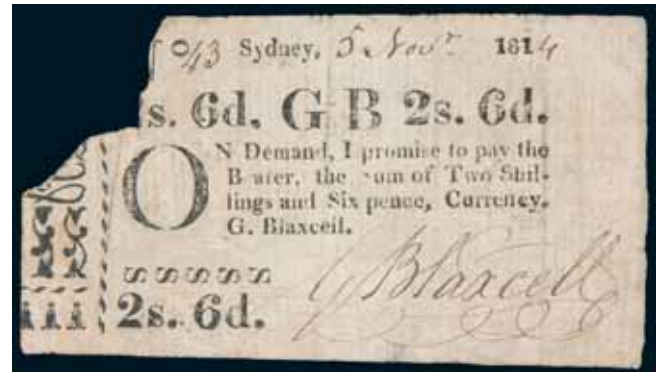 No/43 Sydney, 5 Novr. 1814
s. 6d. G B 2s. 6d.
ON Demand, I promise to pay the
Bearer, the sum of Two Shil-
lings and Six pence, Currency.
G. Blaxcell.
2s. 6d.
G Blaxcell